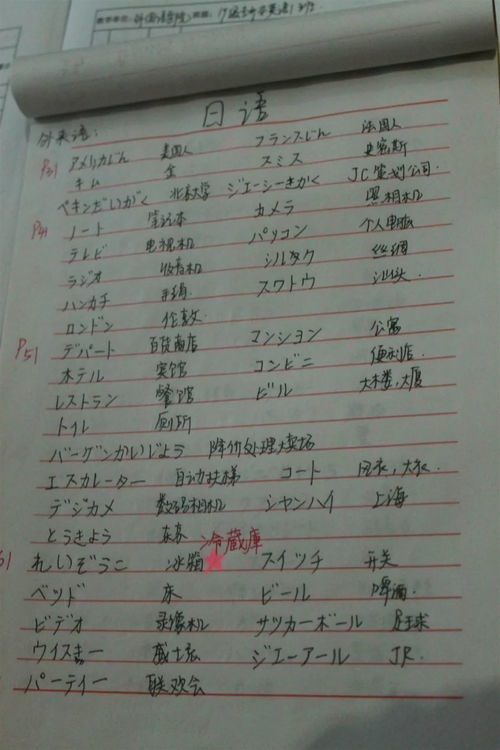 日语
外来语:
P31 アメリカじん 美国人 フランスじん 法国人
キム 金 スミス 史密斯
ペキンだいがく 北京大学 ジェーシーきかく JC策划公司.
ノート 笔记本 カメラ 照相机
テレビ 电视机 パソコン 个人电脑
ラジオ 收音机 シルク 丝绸
ハンカチ 手绢 スワトウ 汕头.
ロンドン 伦敦.
P51 デパート 百货商店 マンション 公寓
ホテル 宾馆 コンビニ 便利店.
レストラン 餐馆 ビル 大楼,大厦
トイレ 厕所
バーゲンかいじょう 降价处理大卖场
エスカレーター 自动扶梯 コート 风衣,大衣.
デジカメ 数码相机 シャンハイ 上海
とうきょう 东京
れいぞうこ 冰箱 冷蔵庫 スイッチ 开关
ベッド 床 ビール 啤酒.
ビデオ 录像机 サッカーボール 足球
ウイスキー 威士忌 ジェーアール JR.
パーティー 联欢会